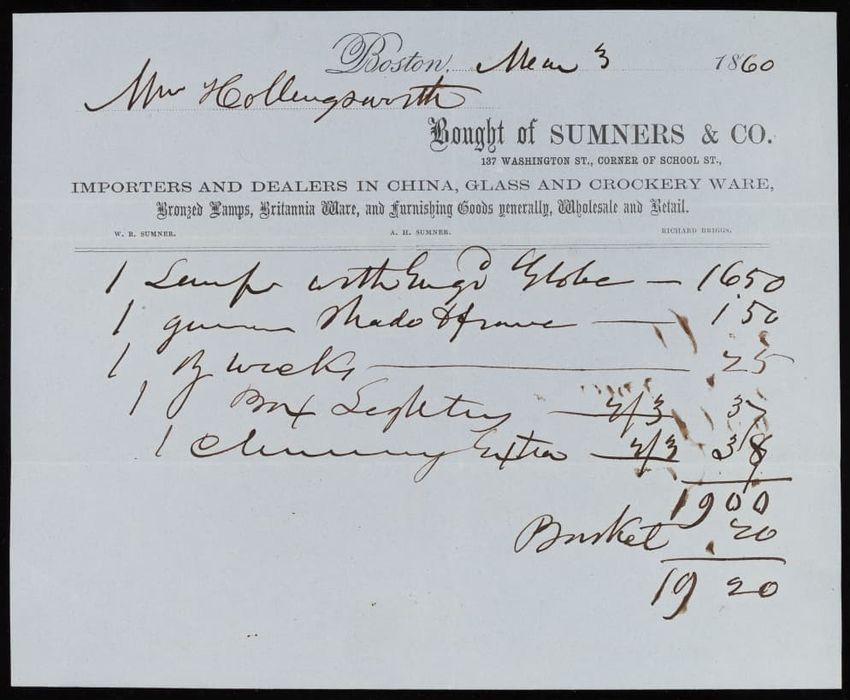 Boston, Mar 3 1860
Mrs Hollingsworth
Bought of SUMNERS & CO.
137 WASHINGTON ST., CORNER OF SCHOOL ST.,
IMPORTERS AND DEALERS IN CHINA, GLASS AND CROCKERY WARE,
Bronzed Lamps, Britannia Ware, and Furnishing Goods generally, Wholesale and Retail.
W. R. SUMNER. A. H. SUMNER. RICHARD BRIGGS.
1 Lamp with Eng'd Globe — 16 50
1 Shade & frame — 1 50
1 wicks — 25
1 Box Lighters — 2/3 37
1 Chimney Extra — 2/3 38
19 00
Basket .20
19 20